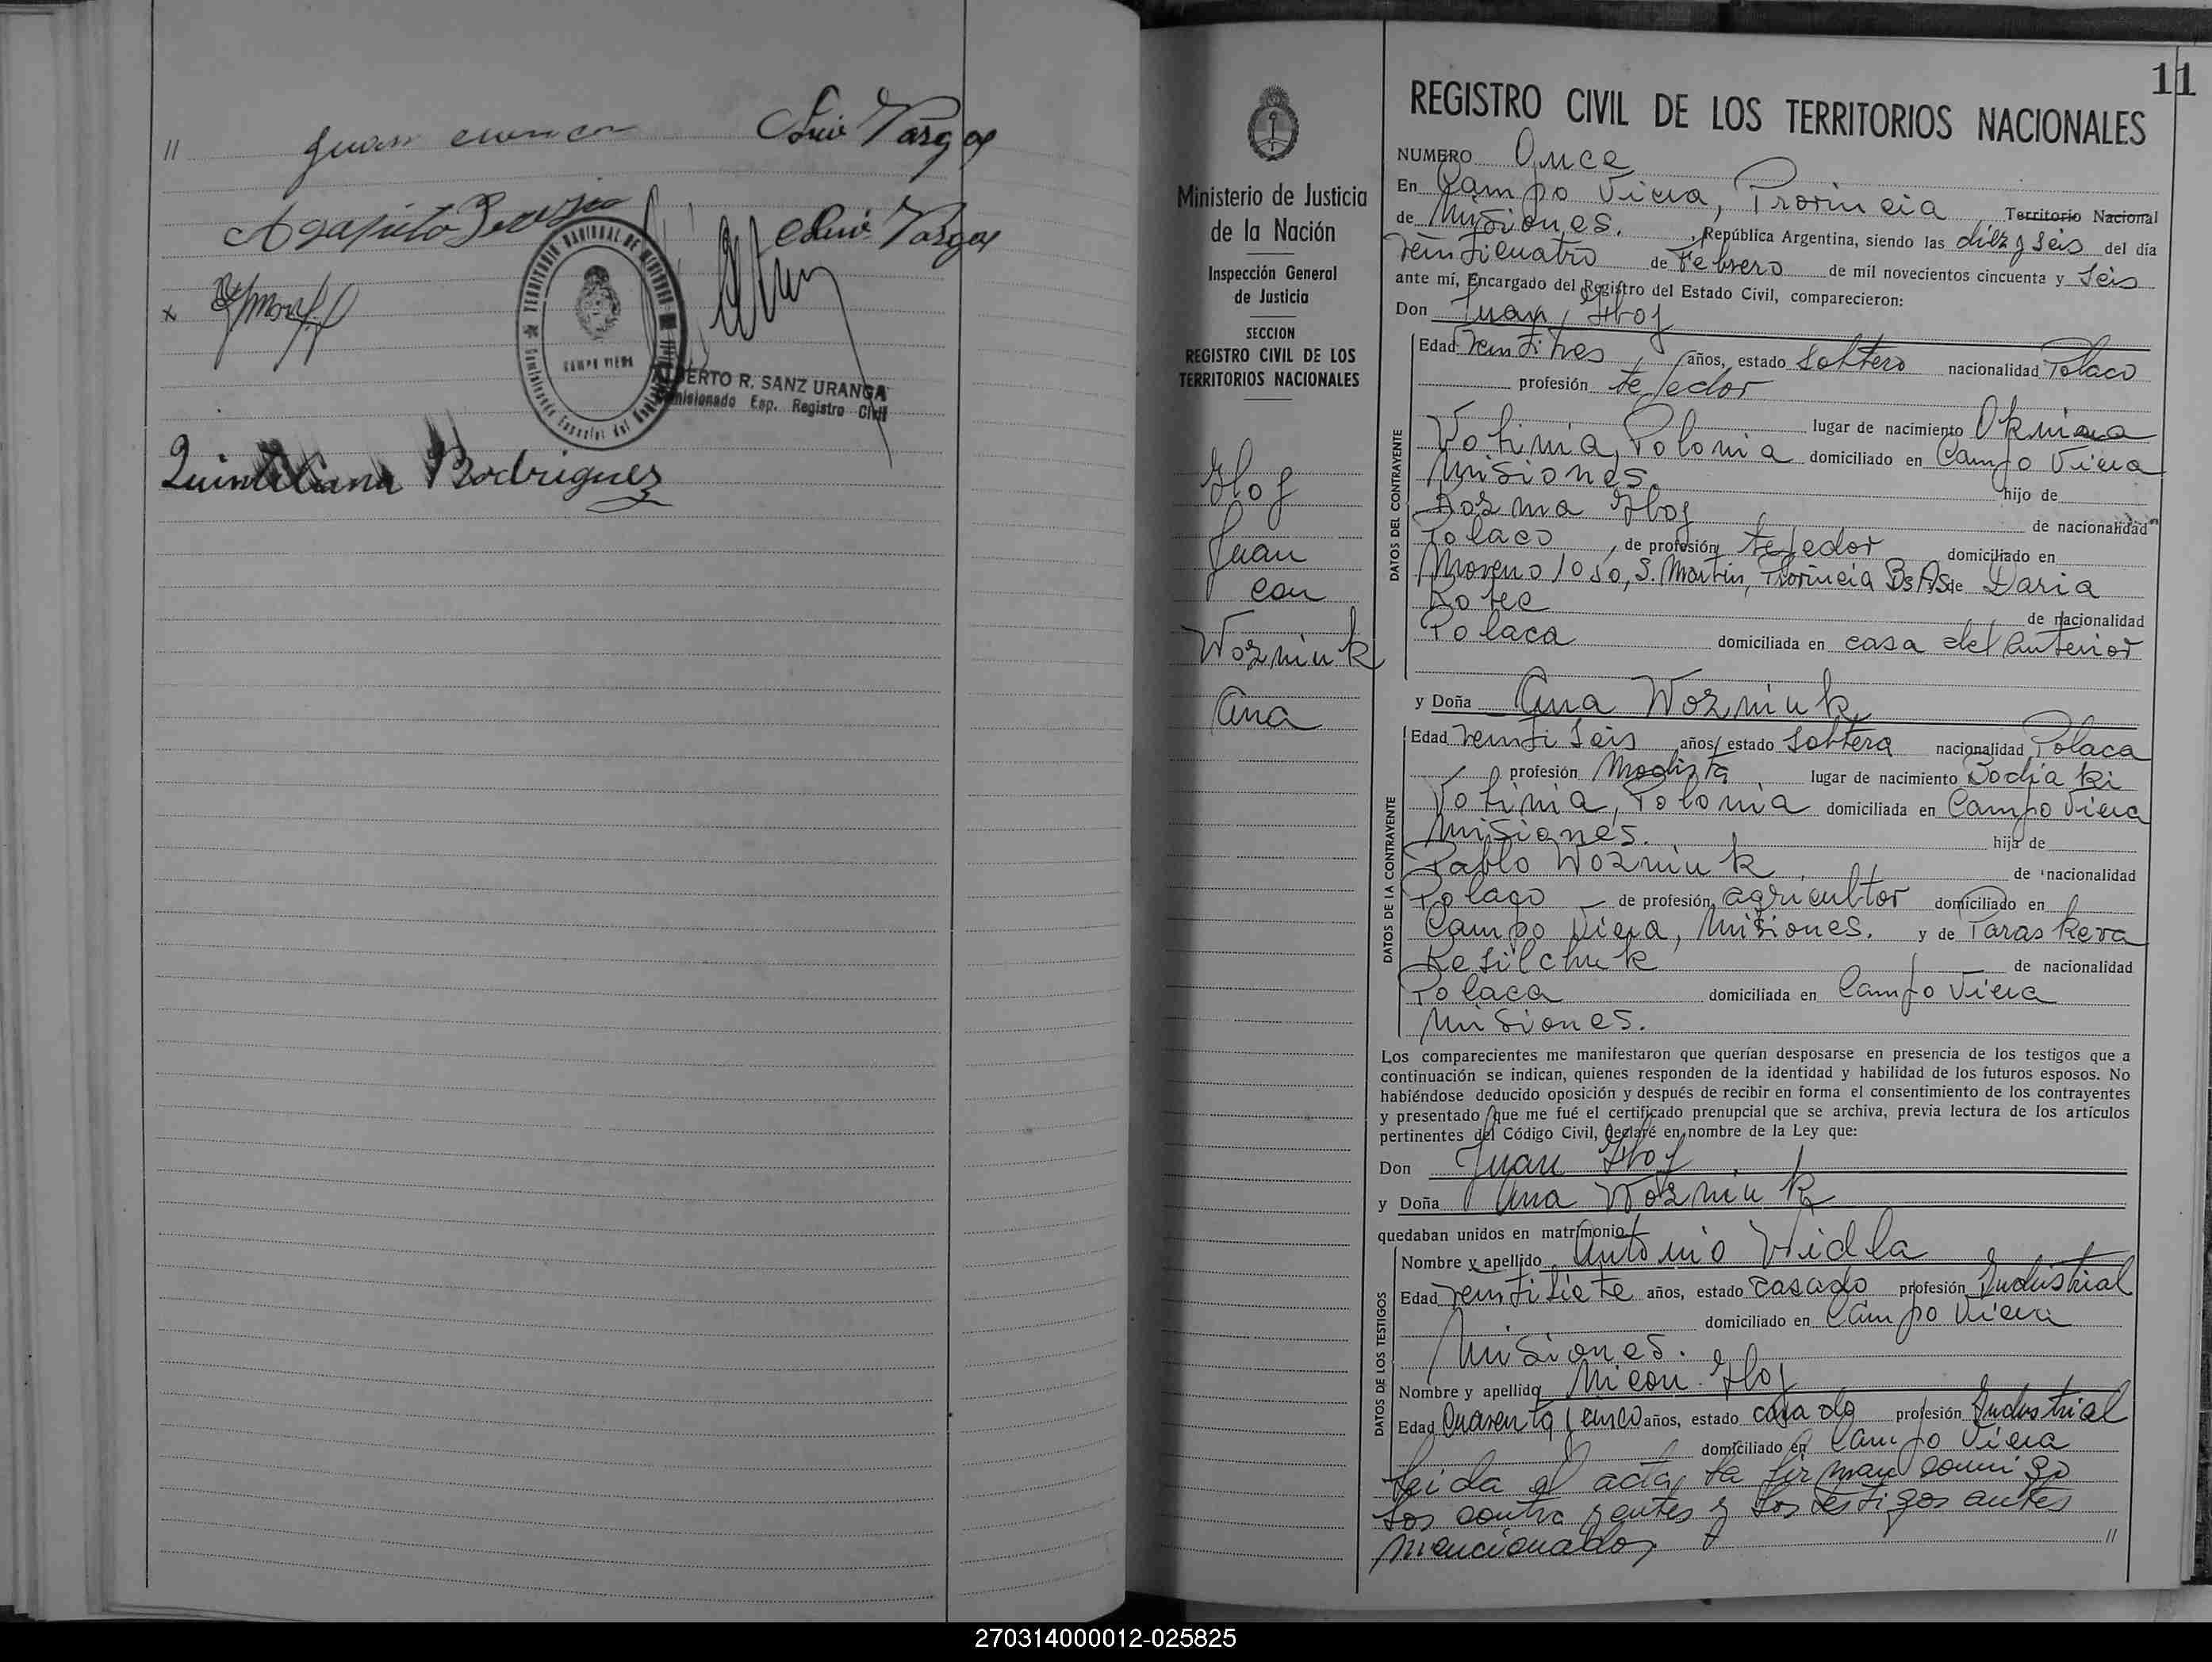 //
Luis Vargas
Luis Vargas
TERRITORIO NACIONAL DE MISIONES
CAMPO VIERA
ALBERTO R. SANZ URANGA
Comisionado Esp. Registro Civil
Quintiliana Rodriguez
11
Ministerio de Justicia
de la Nación
Inspección General
de Justicia
SECCION
REGISTRO CIVIL DE LOS
TERRITORIOS NACIONALES
Hoj
Juan
con
Wozniuk
Ana
REGISTRO CIVIL DE LOS TERRITORIOS NACIONALES
NUMERO Once
En Campo Viera, Provincia Territorio Nacional
de Misiones. , República Argentina, siendo las diez y seis del día
veinticuatro de Febrero de mil novecientos cincuenta y seis
ante mí, Encargado del Registro del Estado Civil, comparecieron:
Don Juan Hoj
DATOS DEL CONTRAYENTE
Edad veintitres años, estado Soltero nacionalidad Polaco
profesión tejedor
lugar de nacimiento
Volinia, Polonia domiciliado en Campo Viera
Misiones. hijo de
Kosma Hoj de nacionalidad
Polaco, de profesión tejedor domiciliado en
Moreno 1050, S. Martin, Provincia Bs As de Daria
Kotec de nacionalidad
Polaca domiciliada en casa del anterior
y Doña Ana Wozniuk
DATOS DE LA CONTRAYENTE
Edad veintiseis años, estado Soltera nacionalidad Polaca
profesión Modista lugar de nacimiento Bodiaki
Volinia, Polonia domiciliada en Campo Viera
Misiones. hija de
Pablo Wozniuk de nacionalidad
Polaco de profesión agricultor domiciliado en
Campo Viera, Misiones. y de Paraskeva
Kesilchuk de nacionalidad
Polaca domiciliada en Campo Viera
Misiones.
Los comparecientes me manifestaron que querían desposarse en presencia de los testigos que a
continuación se indican, quienes responden de la identidad y habilidad de los futuros esposos. No
habiéndose deducido oposición y después de recibir en forma el consentimiento de los contrayentes
y presentado que me fué el certificado prenupcial que se archiva, previa lectura de los artículos
pertinentes del Código Civil, declaré en nombre de la Ley que:
Don Juan Hoj
y Doña Ana Wozniuk
quedaban unidos en matrimonio
DATOS DE LOS TESTIGOS
Nombre y apellido Antonio Vidla
Edad veintisiete años, estado casado profesión Industrial
domiciliado en Campo Viera
Misiones.
Nombre y apellido Nicon Hoj
Edad Cuarenta y cinco años, estado casado profesión Industrial
domiciliado en Campo Viera
Leida el acta, la firman conmigo
los contrayentes y los testigos antes
mencionados //
270314000012-025825